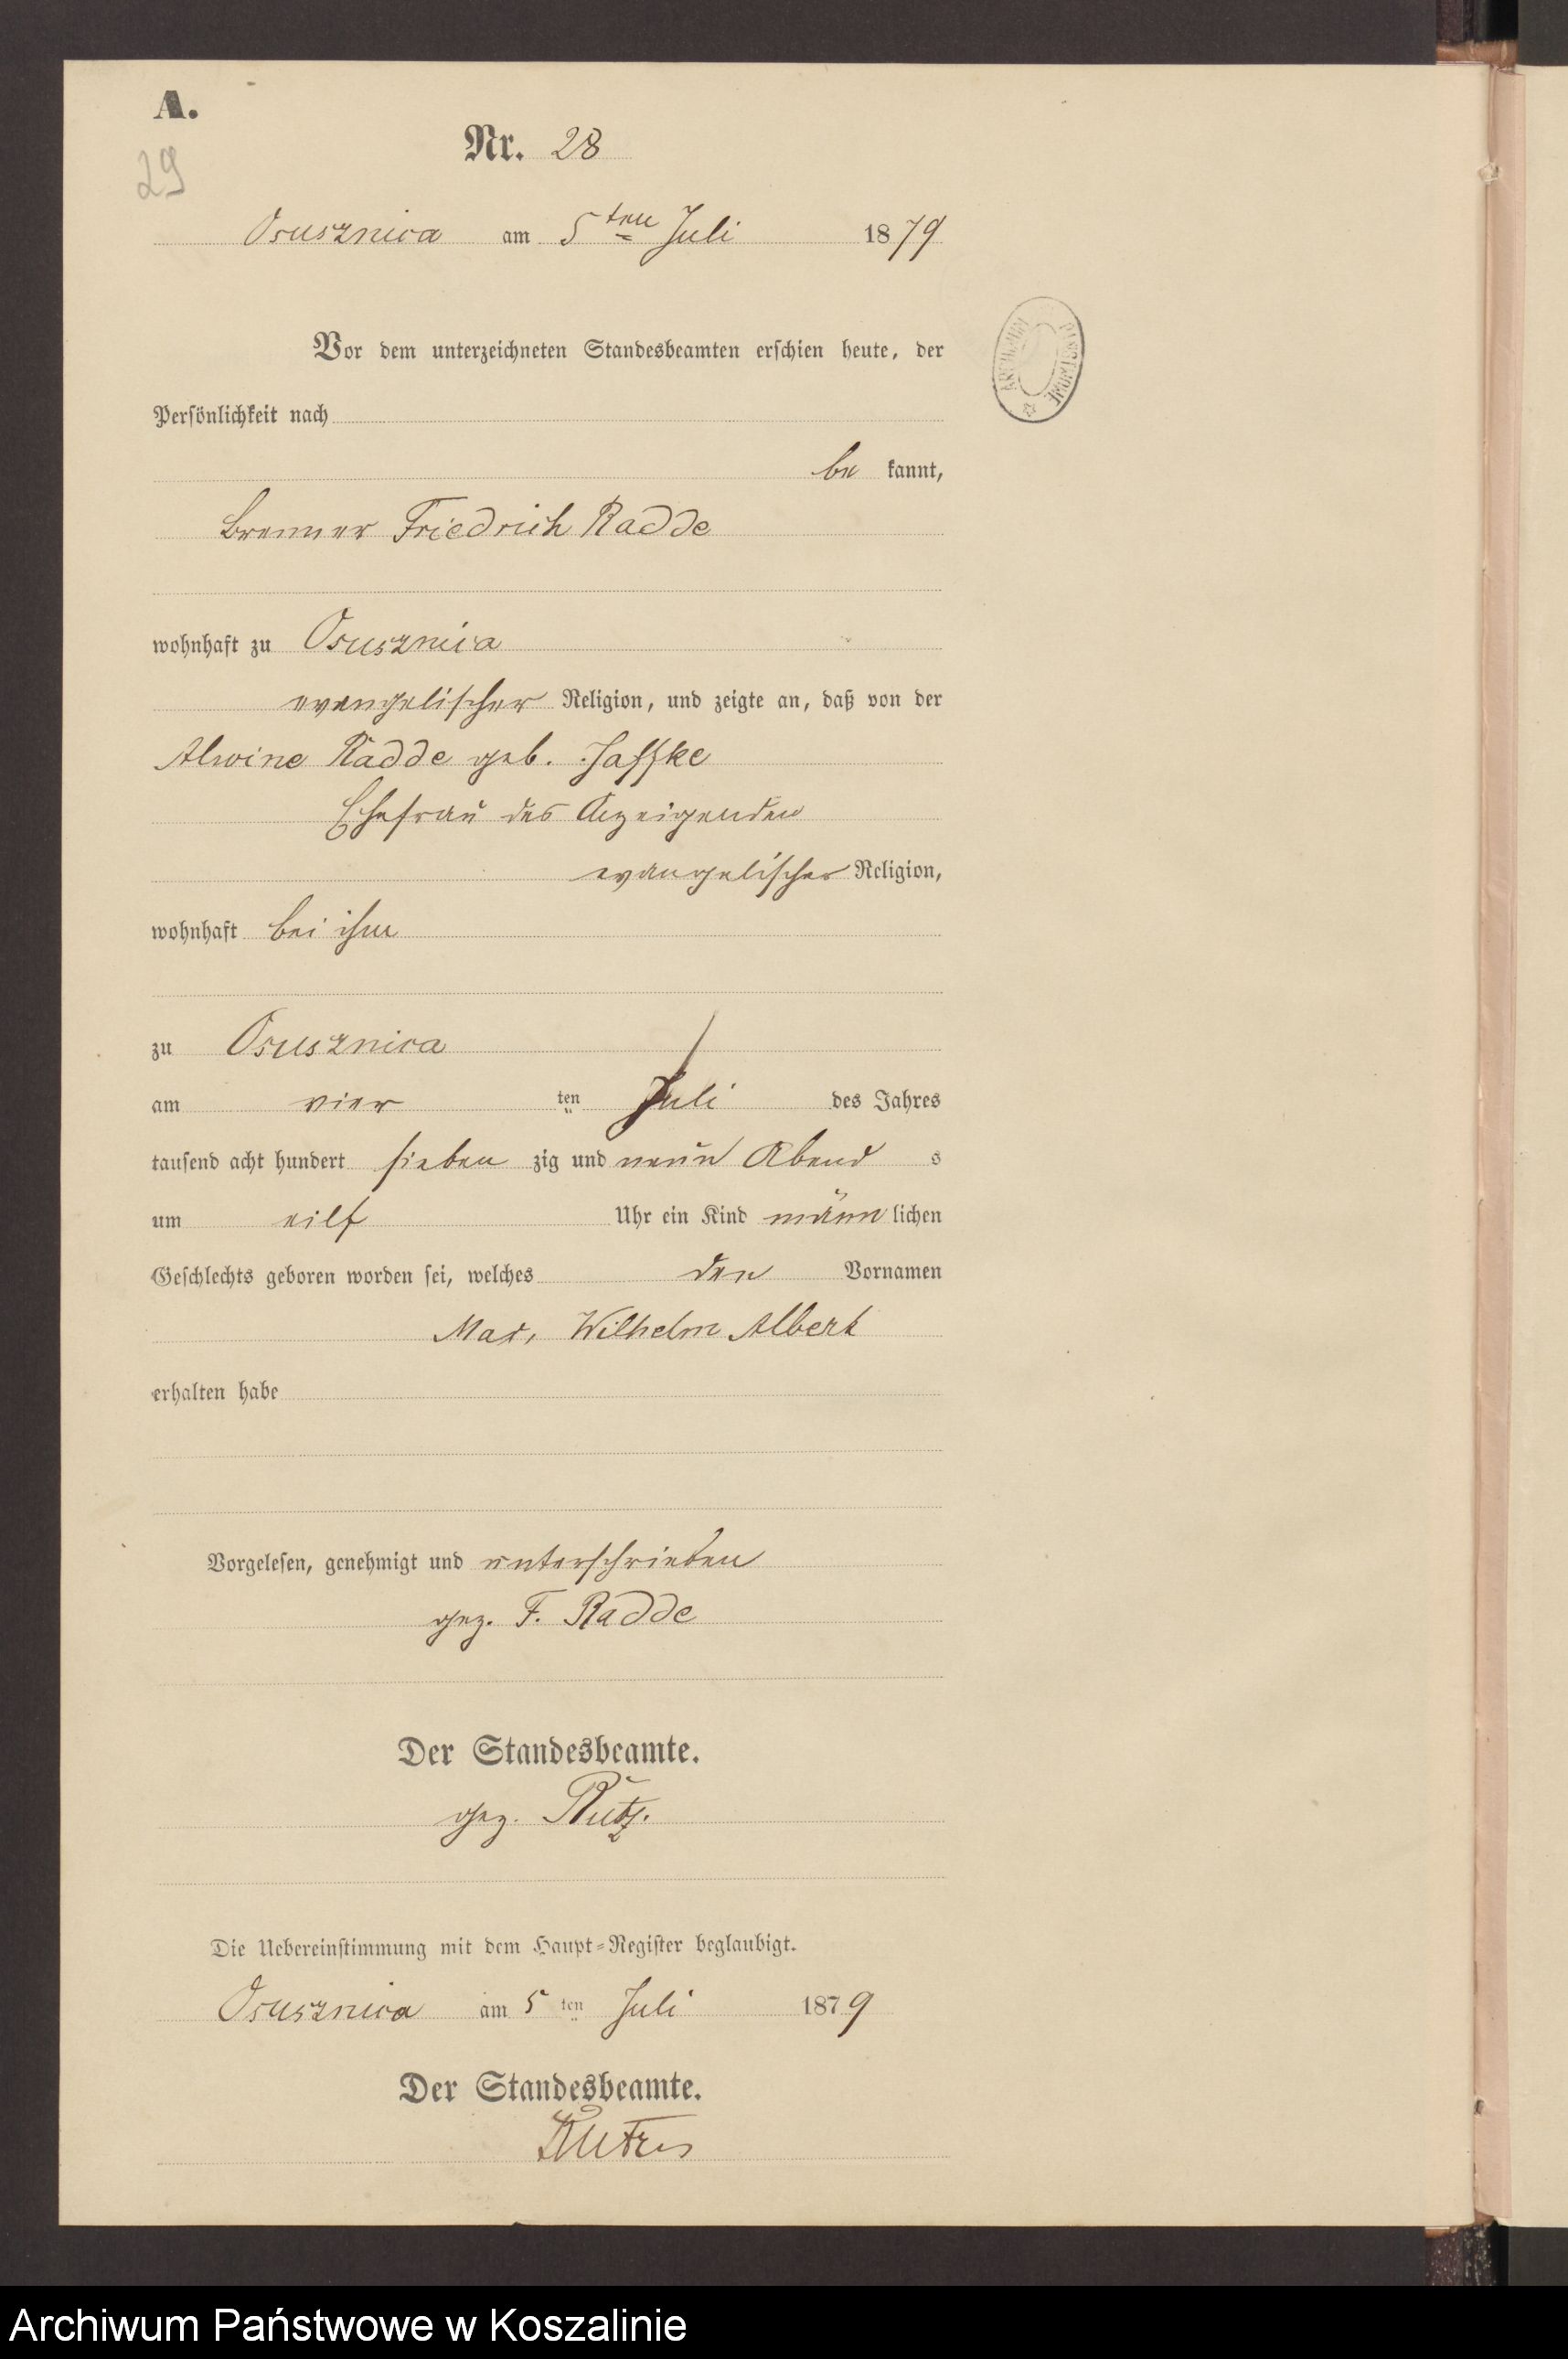 A.
29
Nr. 28
Osusznica am 5ten Juli 1879
Vor dem unterzeichneten Standesbeamten erschien heute, der
Persönlichkeit nach
be kannt,
Brenner Friedrich Radde
wohnhaft zu Osusznica
evangelischer Religion, und zeigte an, daß von der
Alwine Radde geb. Jaffke
Ehefrau des Anzeigenden
evangelischer Religion,
wohnhaft bei ihm
zu Osusznica
am vier ten Juli des Jahres
tausend acht hundert sieben zig und neun Abend s
um eilf Uhr ein Kind männ lichen
Geschlechts geboren worden sei, welches den Vornamen
Max, Wilhelm Albert
erhalten habe
Vorgelesen, genehmigt und unterschrieben
gez. F. Radde
Der Standesbeamte.
gez.
Die Uebereinstimmung mit dem Haupt-Register beglaubigt.
Osusznica am 5 ten Juli 1879
Der Standesbeamte.
ARCHIWUM PAŃSTWOWE
Archiwum Państwowe w Koszalinie